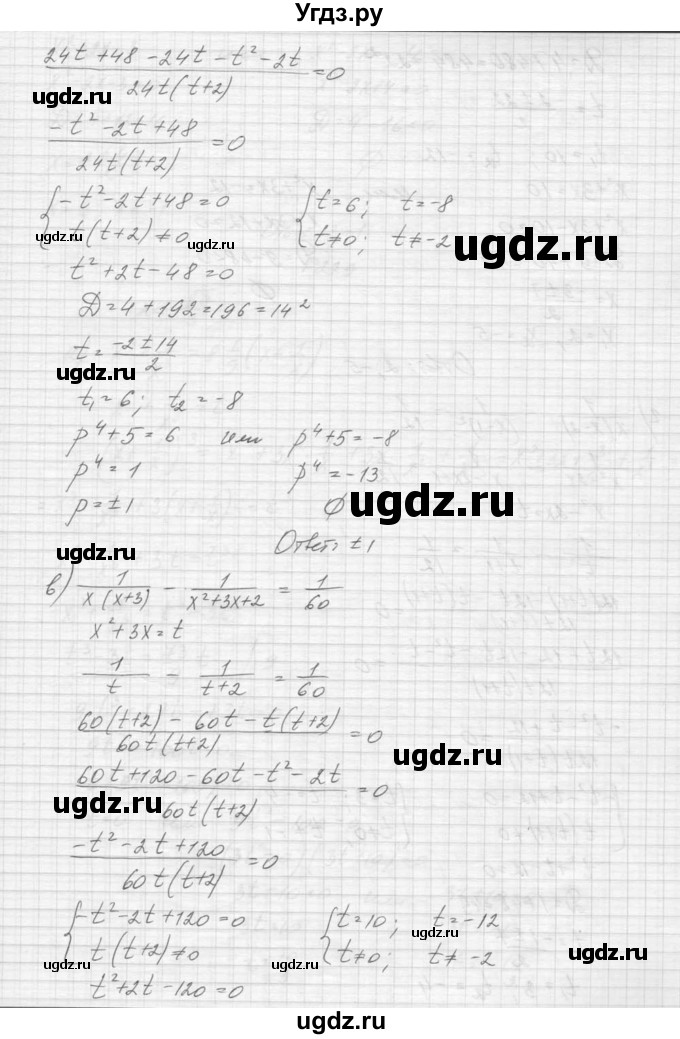 Угдз.ру
(24t+48-24t-t²-2t)/(24t(t+2))=0
ugdz.ru
(-t²-2t+48)/(24t(t+2))=0
{-t²-2t+48=0 {t=6; t=-8
t(t+2)≠0 t≠0; t≠-2
ugdz.ru ugdz.ru ugdz.ru
t²+2t-48=0
D=4+192=196=14²
t=(-2±14)/2
ugdz.ru
t₁=6; t₂=-8
p⁴+5=6 или p⁴+5=-8
p⁴=1 p⁴=-13
p=±1 ∅
ugdz.ru ugdz.ru
Ответ: ±1
в) 1/(x(x+3)) - 1/(x²+3x+2) = 1/60
x²+3x=t
ugdz.ru
1/t - 1/(t+2) = 1/60
(60(t+2)-60t-t(t+2))/(60t(t+2))=0
ugdz.ru
(60t+120-60t-t²-2t)/(60t(t+2))=0
ugdz.ru
(-t²-2t+120)/(60t(t+2))=0
{-t²-2t+120=0 {t=10; t=-12
ugdz.ru
t(t+2)≠0 t≠0; t≠-2
ugdz.ru ugdz.ru ugdz.ru
t²+2t-120=0
ugdz.ru